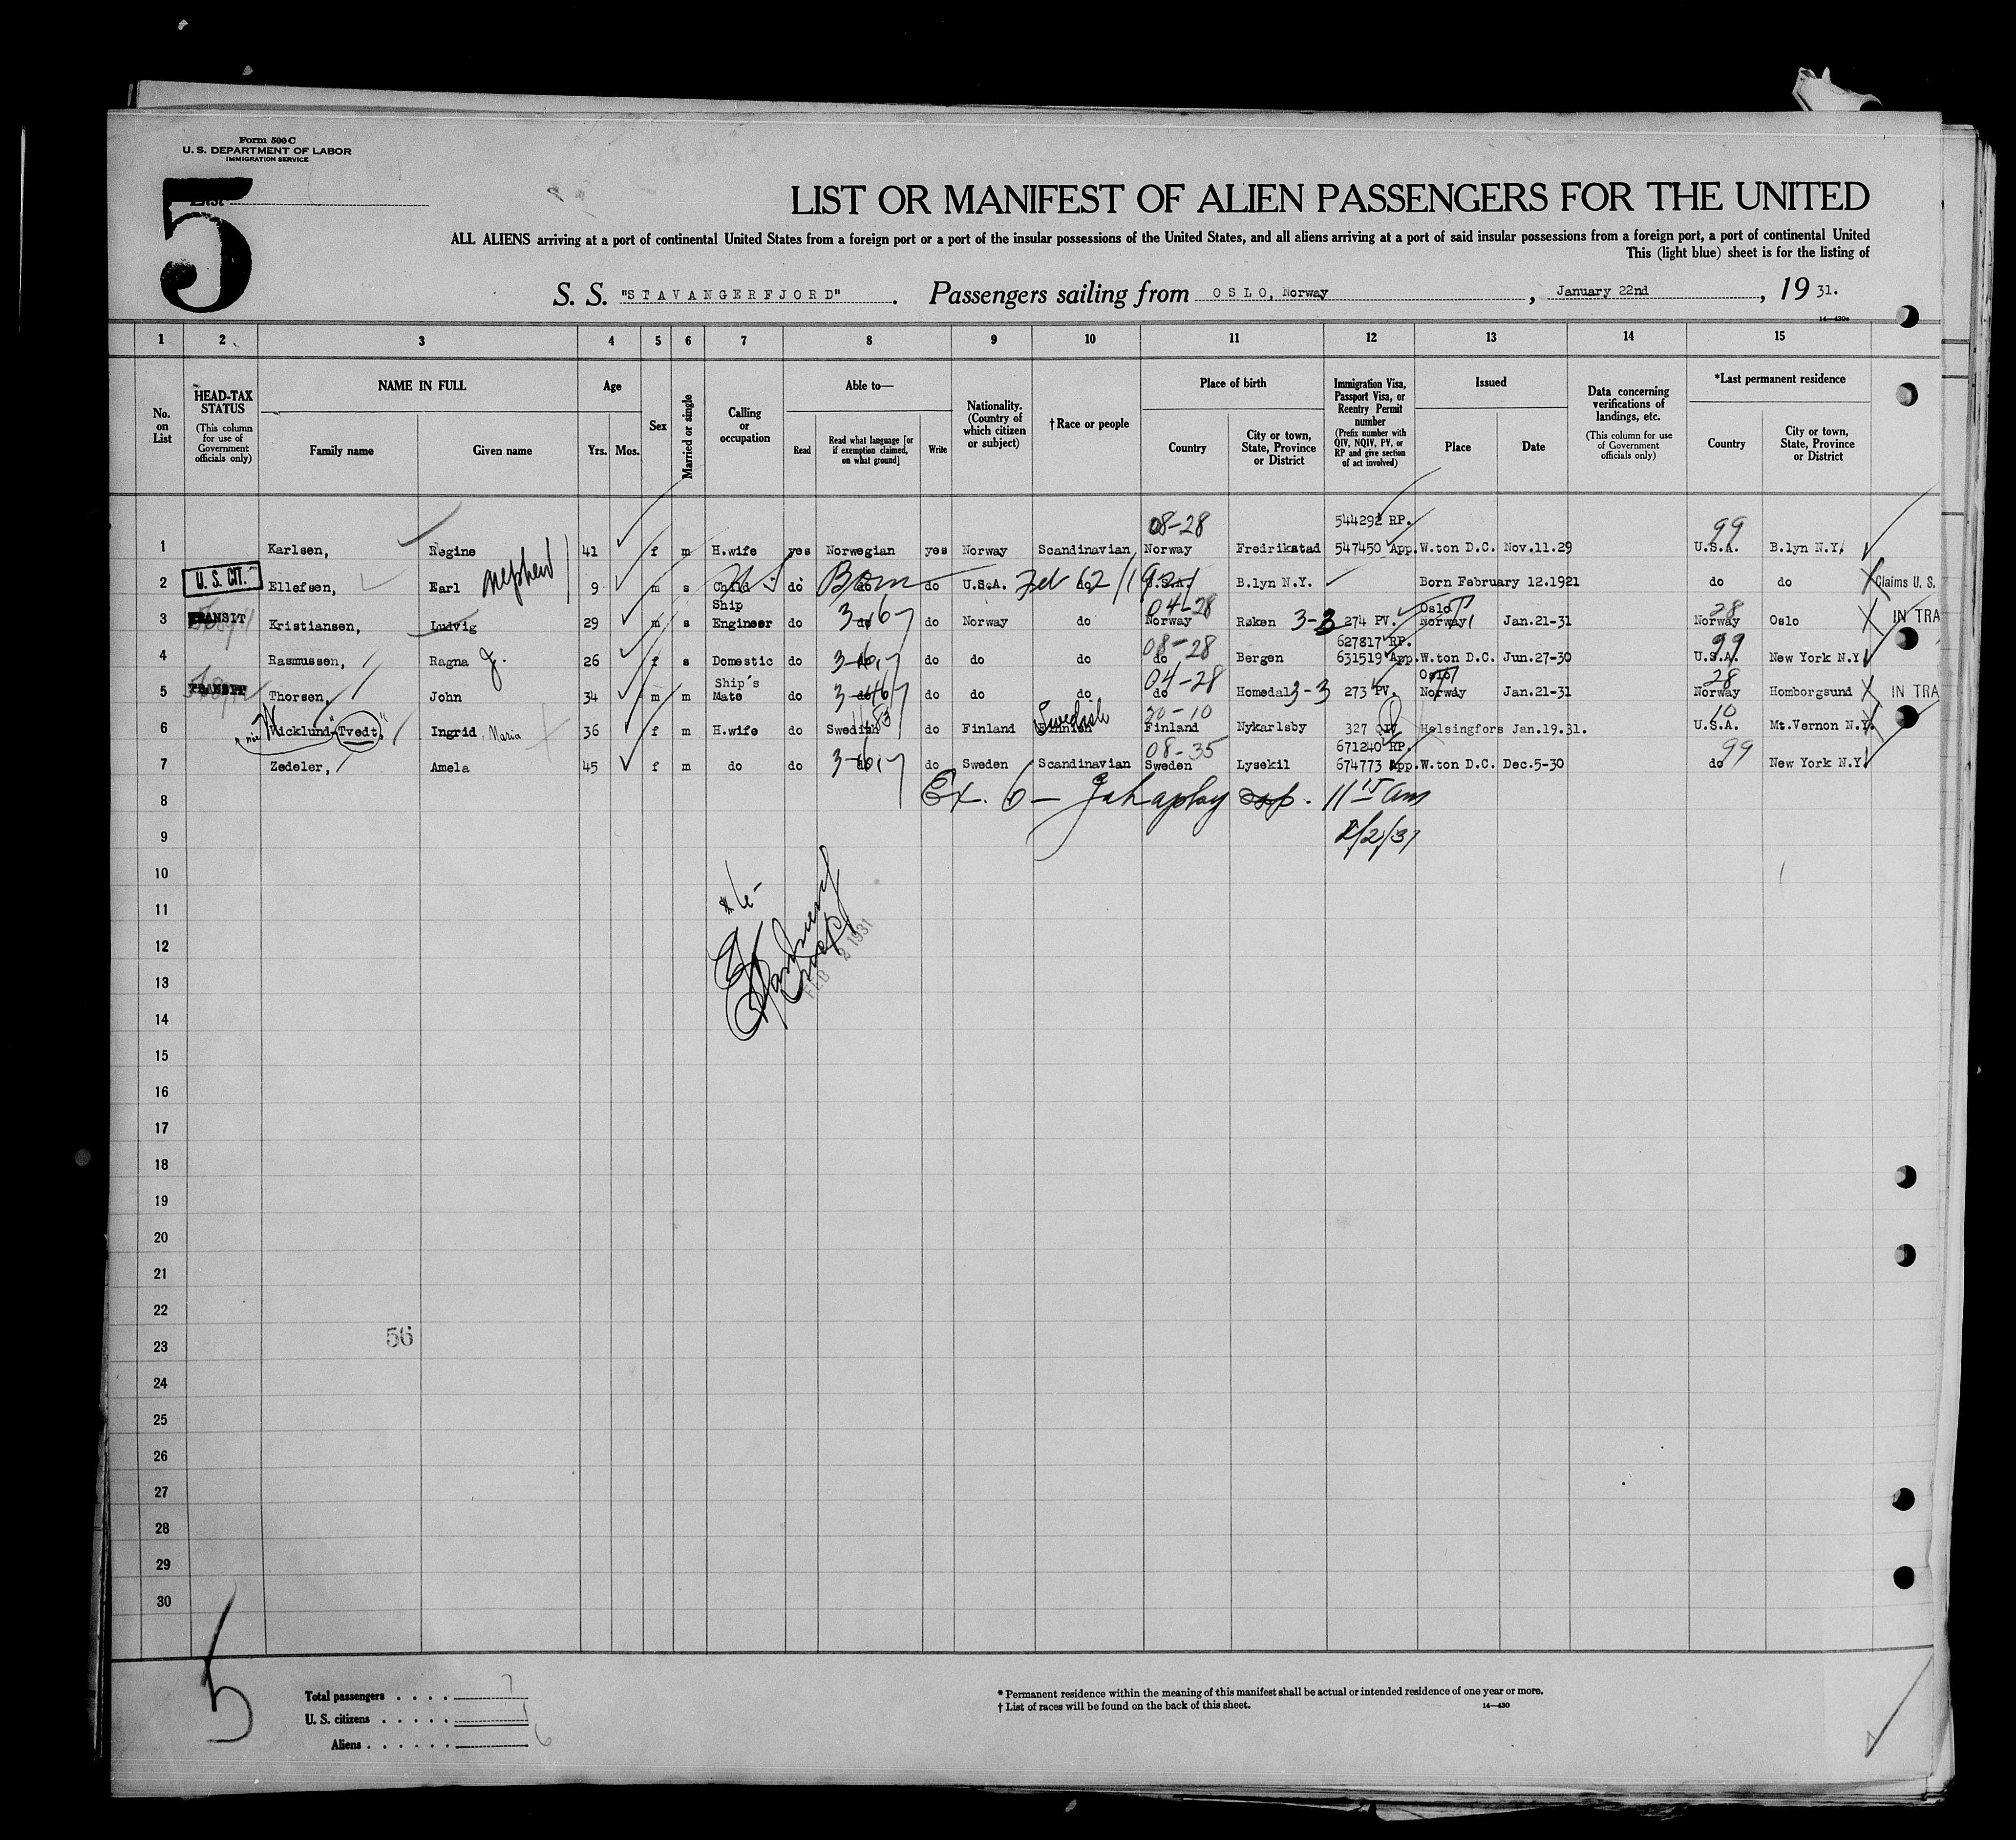 Form 500 C
U. S. DEPARTMENT OF LABOR
IMMIGRATION SERVICE
5
List
LIST OR MANIFEST OF ALIEN PASSENGERS FOR THE UNITED
ALL ALIENS arriving at a port of continental United States from a foreign port or a port of the insular possessions of the United States, and all aliens arriving at a port of said insular possessions from a foreign port, a port of continental United
This (light blue) sheet is for the listing of
S. S. "STAVANGERFJORD". Passengers sailing from OSLO, Norway, January 22nd, 19 31.
14—430c
1 2 3 4 5 6 7 8 9 10 11 12 13 14 15
No. on List
HEAD-TAX STATUS (This column for use of Government officials only)
NAME IN FULL
Family name Given name
Age
Yrs. Mos.
Sex
Married or single
Calling or occupation
Able to—
Read
Read what language [or if exemption claimed, on what ground]
Write
Nationality. (Country of which citizen or subject)
† Race or people
Place of birth
Country
City or town, State, Province or District
Immigration Visa, Passport Visa, or Reentry Permit number (Prefix number with QIV, NQIV, PV, or RP and give section of act involved)
Issued
Place Date
Data concerning verifications of landings, etc. (This column for use of Government officials only)
*Last permanent residence
Country
City or town, State, Province or District
08-28 544292 RP. 99
1 Karlsen, Regine 41 f m H.wife yes Norwegian yes Norway Scandinavian Norway Fredrikstad 547450 App. W.ton D.C. Nov.11.29 U.S.A. B.lyn N.Y.
2 U. S. CIT. Ellefsen, Earl nephew 9 m s Child US do do Born do U.S.A. do Feb 12/1921 U.S.A. B.lyn N.Y. Born February 12.1921 do do Claims U. S.
Ship 04-28 Oslo 28
3 TRANSIT Kristiansen, Ludvig 29 m s Engineer do do do Norway do Norway Røken 3-3 274 PV. Norway Jan.21-31 Norway Oslo IN TRA
08-28 627817 RP. 99
4 Rasmussen, Ragna J. 26 f s Domestic do do do do do do Bergen 631519 App. W.ton D.C. Jun.27-30 U.S.A. New York N.Y
Ship's 04-28 Oslo 28
5 TRANSIT Thorsen, John 34 m m Mate do do do do do do Homedal 3-3 273 PV. Norway Jan.21-31 Norway Homborgsund IN TRA
83 Swedish 20-10 10
6 Wicklund-"Tvedt." Ingrid Maria 36 f m H.wife do Swedish do Finland Finnish Finland Nykarlsby 327 QIV Helsingfors Jan.19.31. U.S.A. Mt.Vernon N.Y.
08-35 671240 RP. 99
7 Zedeler, Amela 45 f m do do do do Sweden Scandinavian Sweden Lysekil 674773 App. W.ton D.C. Dec.5-30 do New York N.Y
8 Ex. 6 —
9 2/2/31
10
11
12 FEB 2 1931
13
14
15
16
17
18
19
20
21
22
23 56
24
25
26
27
28
29
30
5
Total passengers . . . . 7
U. S. citizens . . . . . 1
Aliens . . . . . . 6
* Permanent residence within the meaning of this manifest shall be actual or intended residence of one year or more.
† List of races will be found on the back of this sheet. 14—430